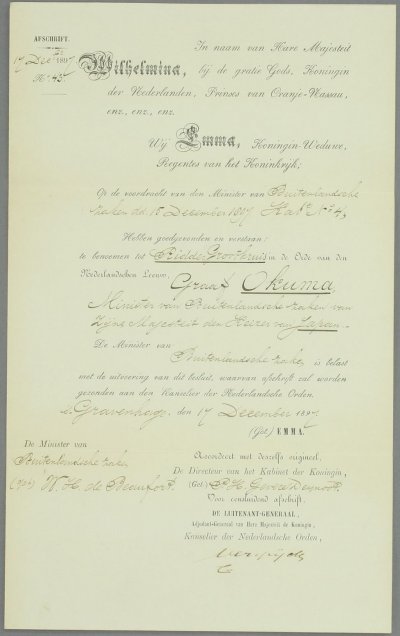 AFSCHRIFT.
17 Dec 1897
No. 45.
In naam van Hare Majesteit
Wilhelmina, bij de gratie Gods, Koningin
der Nederlanden, Prinses van Oranje-Nassau,
enz., enz., enz.
Wij Emma, Koningin-Weduwe,
Regentes van het Koninkrijk;
Op de voordracht van den Minister van Buitenlandsche
Zaken dd. 15 December 1897, Kab. No 4,
Hebben goedgevonden en verstaan:
te benoemen tot Ridder Grootkruis in de Orde van den
Nederlandschen Leeuw,
Graaf Okuma
Minister van Buitenlandsche Zaken van
Zijne Majesteit den Keizer van Japan.
De Minister van
Buitenlandsche Zaken is belast
met de uitvoering van dit besluit, waarvan afschrift zal worden
gezonden aan den Kanselier der Nederlandsche Orden.
's Gravenhage, den 17 December 1897.
(Get.) EMMA.
De Minister van
Buitenlandsche Zaken
(get.) W. H. de Beaufort.
Accordeert met deszelfs origineel,
De Directeur van het Kabinet der Koningin,
(Get.)
Voor eensluidend afschrift,
DE LUITENANT-GENERAAL,
Adjudant-Generaal van Hare Majesteit de Koningin,
Kanselier der Nederlandsche Orden,